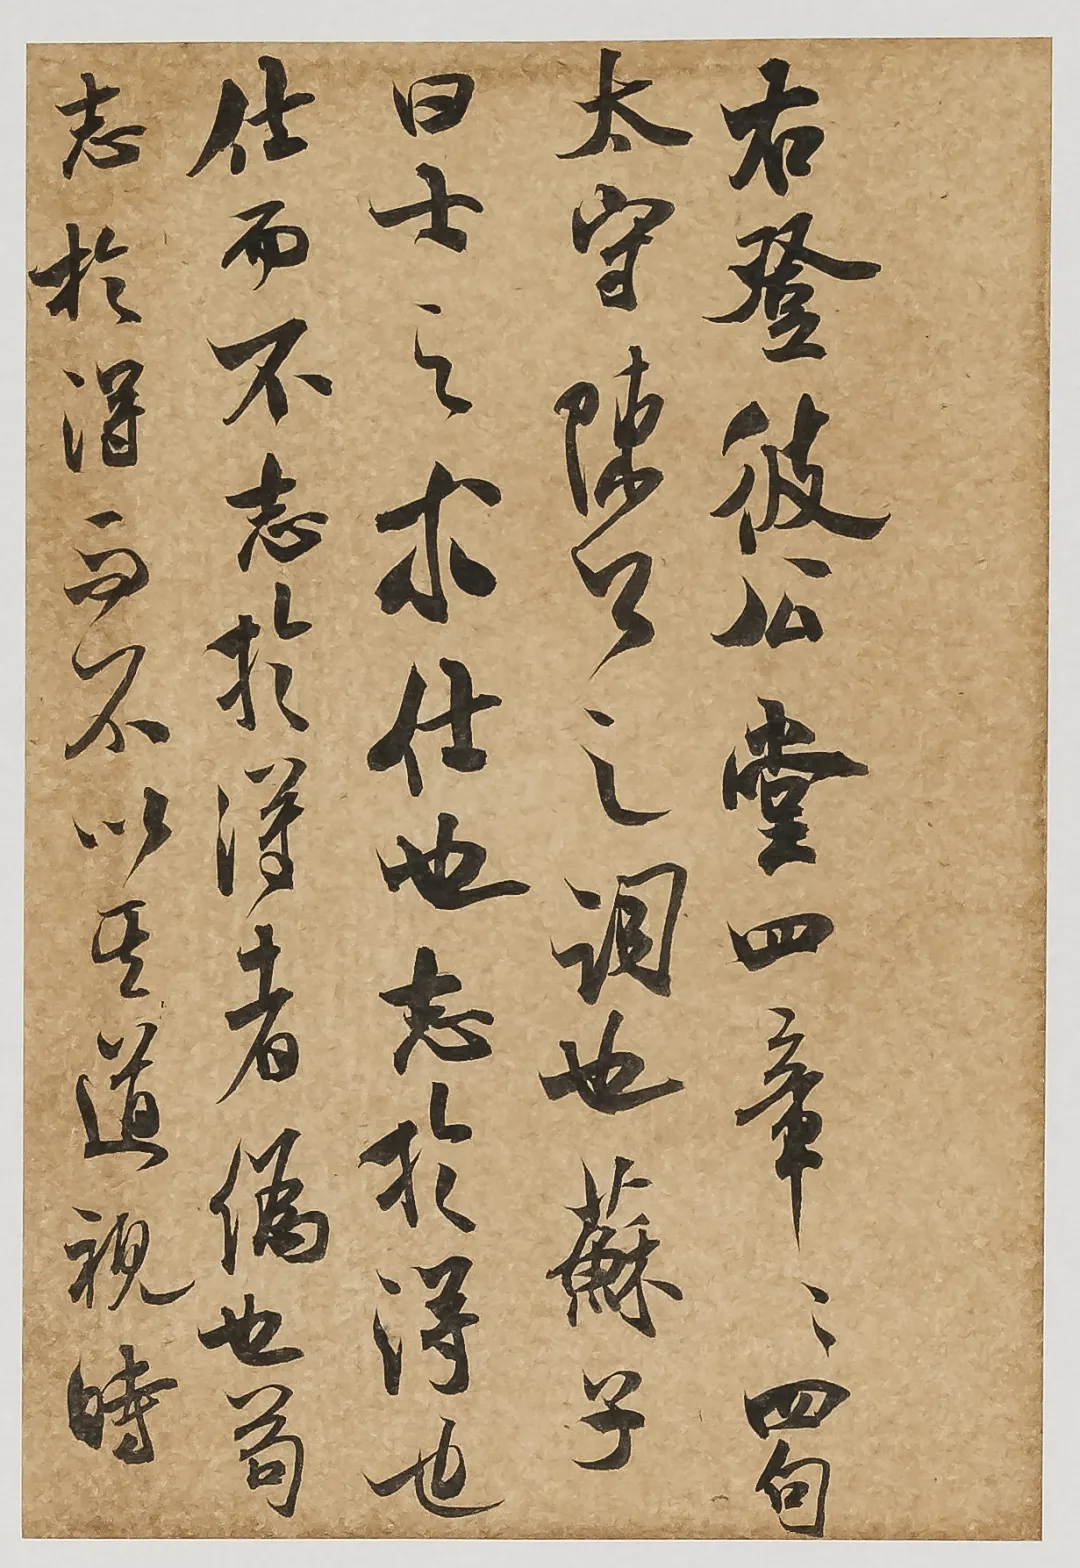 右登彼公堂四章章四句
太守陳公之詞也蘇子
曰士之求仕也志於得也
仕而不志於得者偽也苟
志於得而不以其道視時